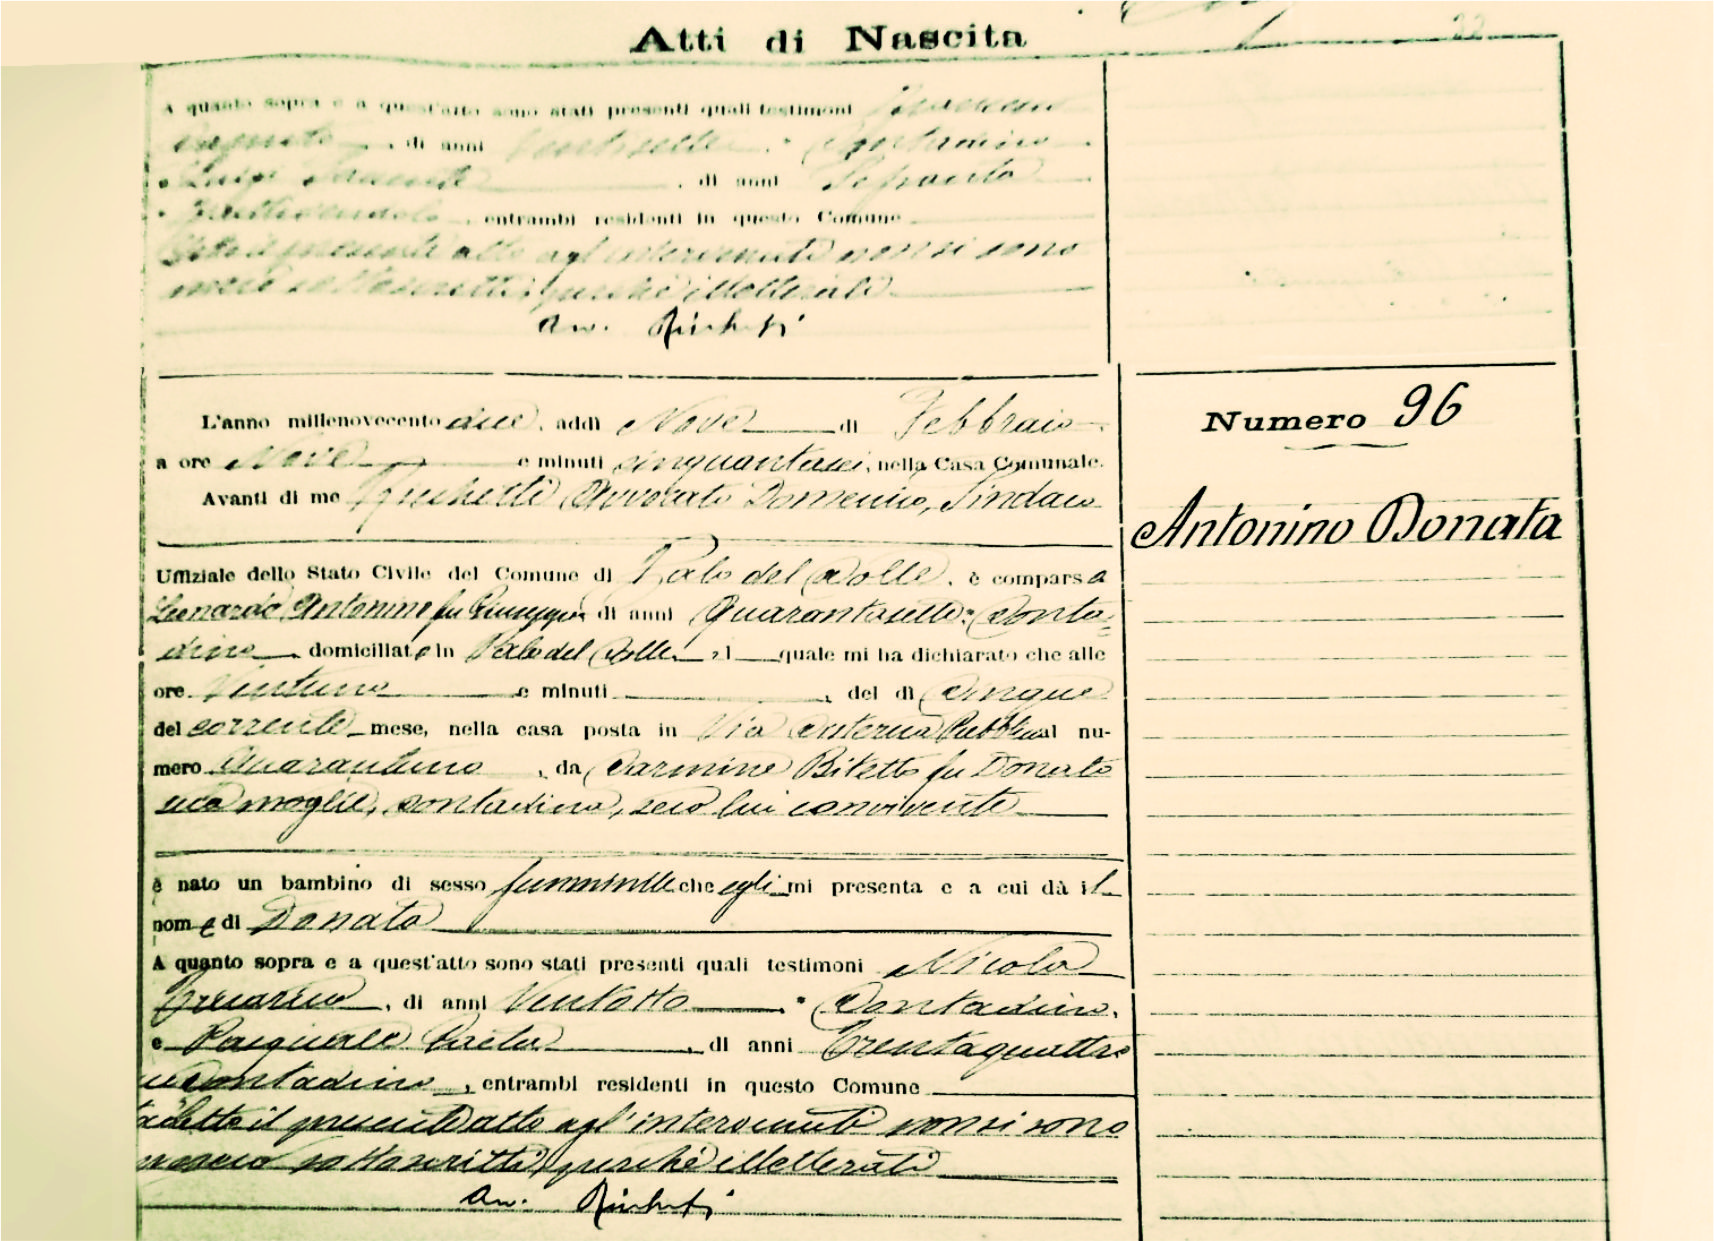 Atti di Nascita
A quanto sopra e a quest'atto sono stati presenti quali testimoni
, di anni Ventisette , Contadino
e Luigi , di anni Sessanta
, entrambi residenti in questo Comune
Letto il presente atto agl'intervenuti non si sono
meco sottoscritti, perché illetterati
Av.
L'anno millenovecento due, addì Nove di Febbraio
a ore Nove e minuti cinquantasei, nella Casa Comunale.
Avanti di me Avvocato Domenico, Sindaco
Uffiziale dello Stato Civile del Comune di Palo del Colle, è comparsa
Leonardo Antonino fu Giuseppe, di anni Quarantasette, Conta=
dino domiciliato in Palo del Colle, il quale mi ha dichiarato che alle
ore Ventuno e minuti , del dì Cinque
del corrente mese, nella casa posta in Via Pubblica al nu-
mero Quarantuno , da Carmine Bitetto fu Donato
sua moglie, contadina, seco lui convivente
è nato un bambino di sesso femminile che egli mi presenta e a cui dà il
nome di Donata
A quanto sopra e a quest'atto sono stati presenti quali testimoni Nicola
, di anni Ventotto , Contadino,
e Pasquale , di anni Trentaquattro
Contadino , entrambi residenti in questo Comune
Letto il presente atto agl'intervenuti non si sono
meco sottoscritti, perché illetterati
Av.
Numero 96
Antonino Donata